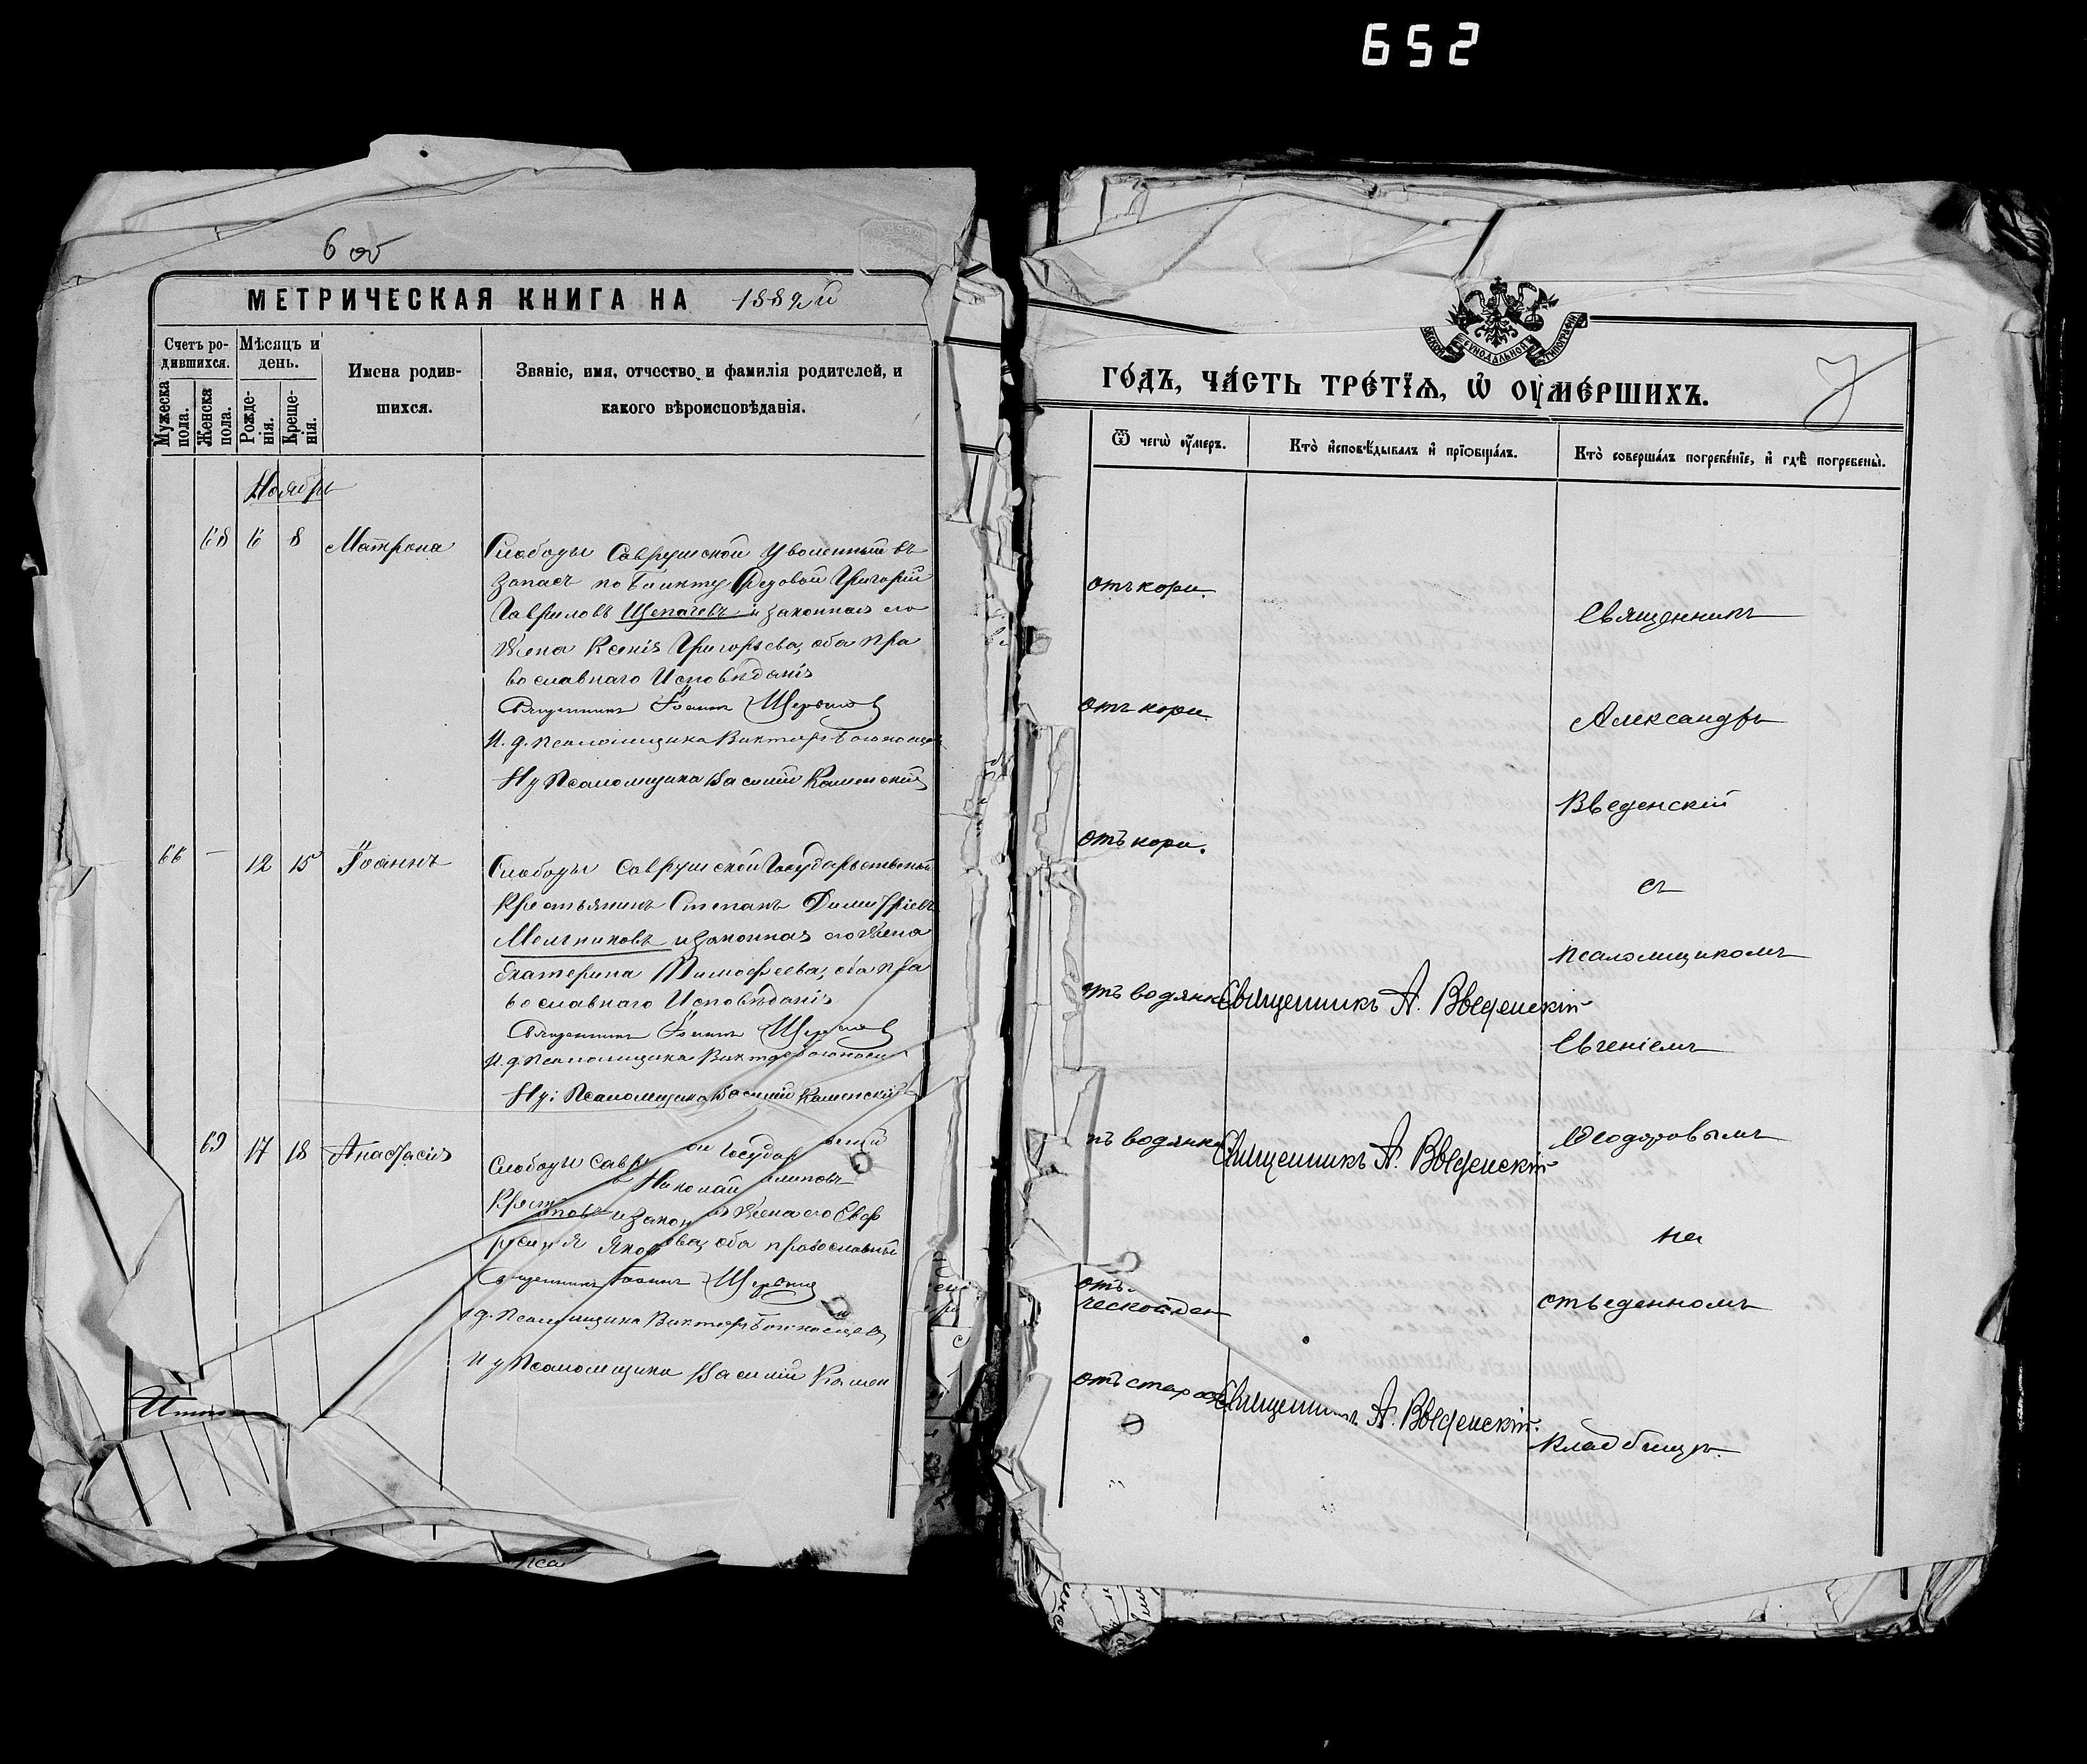 652
6 об
МЕТРИЧЕСКАЯ КНИГА НА 1889 й
Счетъ ро-
дившихся.
Мужеска
пола.
Женска
пола.
Мѣсяцъ и
день.
Рожде-
нія.
Креще-
нія.
Имена родив-
шихся.
Званіе, имя, отчество и фамилія родителей, и
какого вѣроисповѣданія.
Ноябрь
68 6 8 Матрона
Слободы Саврушской уволенный въ
запасъ по Рядовой Григорій
Гавриловъ Щепачевъ и законная его
жена Ксенія Григорьева, оба пра
вославнаго Исповѣданія
Священникъ Іоаннъ
И. д. псаломщика Викторъ
И у Псаломщика Василій Каменскій
66 — 12 15 Іоаннъ
Слободы Саврушской Государственный
крестьянинъ Степанъ Димитріевъ
Мельниковъ и законная его жена
Екатерина Тимофеева, оба пра
вославнаго Исповѣданія
Священникъ Іоаннъ
И. д. псаломщика Викторъ
И у: Псаломщика Василій Каменскій
69 17 18 Анастасія
Слободы Савр ой Государ
Крест Николай
и закон жена его Евф
росинія Яков ва, оба православный
Священникъ Іоаннъ
д. псаломщика Викторъ
И у Псаломщика Василій Камен
Итого
пса
ГО́ДЪ, ЧА́СТЬ ТРЕ́ТЇѦ, Ѡ҆ ОУ҆МЕ́РШИХЪ.
7
Ѿ чегѡ̀ ѹ҆́меръ.
Кто̀ и҆сповѣ́дывалъ и҆ прїѡбща́лъ.
Кто̀ соверша́лъ погребе́нїе, и҆ гдѣ̀ погребены̀.
отъ кори.
Священникъ
отъ кори.
Александръ
Введенскій
отъ кори.
съ
псаломщикомъ
отъ водянк Священникъ А. Введенскій
Евгеніемъ
ъ водянк Священникъ А. Введенскій
Ѳеодоровымъ
на
отъ
ческой
отведенномъ
отъ старос Священникъ А. Введенскій.
кладбищѣ.